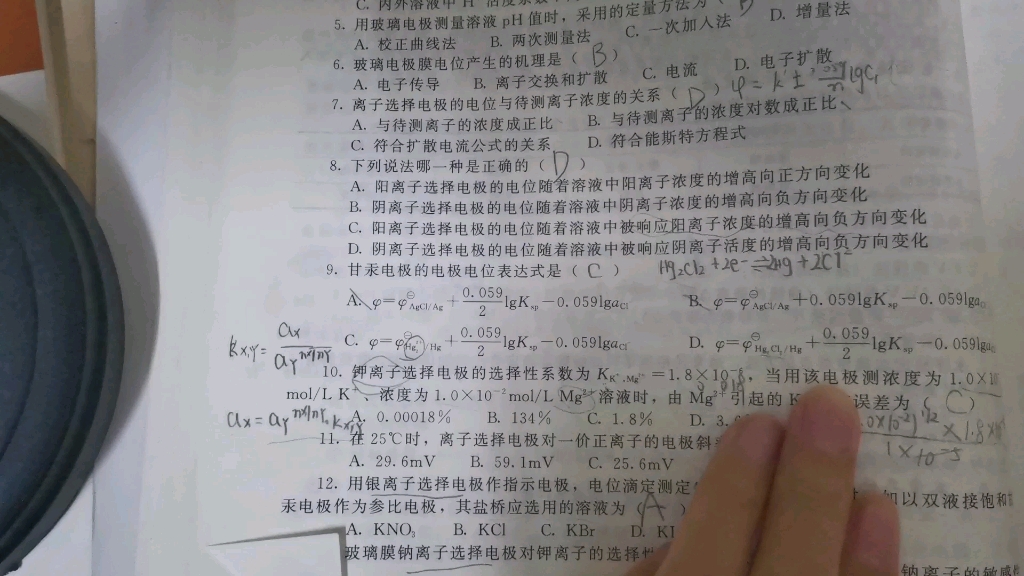 C. 内外溶液中 H⁺ 活度系数
5. 用玻璃电极测量溶液 pH 值时，采用的定量方法为（ D
A. 校正曲线法 B. 两次测量法 C. 一次加入法 D. 增量法
6. 玻璃电极膜电位产生的机理是（ B ）
A. 电子传导 B. 离子交换和扩散 C. 电流 D. 电子扩散
7. 离子选择电极的电位与待测离子浓度的关系（ D ） φ = k' ±
A. 与待测离子的浓度成正比 B. 与待测离子的浓度对数成正比
C. 符合扩散电流公式的关系 D. 符合能斯特方程式
8. 下列说法哪一种是正确的（ D ）
A. 阳离子选择电极的电位随着溶液中阳离子浓度的增高向正方向变化
B. 阴离子选择电极的电位随着溶液中阴离子浓度的增高向负方向变化
C. 阳离子选择电极的电位随着溶液中被响应阳离子浓度的增高向负方向变化
D. 阴离子选择电极的电位随着溶液中被响应阴离子活度的增高向负方向变化
9. 甘汞电极的电极电位表达式是（ C ） Hg₂Cl₂ + 2e⁻ ⇌ 2Hg + 2Cl⁻
A. φ=φ⊖AgCl/Ag + 0.059/2 lgKsp − 0.059lgaCl B. φ=φ⊖AgCl/Ag + 0.059lgKsp − 0.059lga
C. φ=φ⊖Hg/Hg + 0.059/2 lgKsp − 0.059lgaCl D. φ=φ⊖Hg₂Cl₂/Hg + 0.059/2 lgKsp − 0.059lga
Kx,y = ax / ay^nx/ny
10. 钾离子选择电极的选择性系数为 KK⁺,Mg²⁺ =1.8×10⁻⁶，当用该电极测浓度为 1.0×1
mol/L K⁺、浓度为 1.0×10⁻² mol/L Mg²⁺ 溶液时，由 Mg²⁺ 引起的 K 误差为（ C ）
ax = ay^nx/ny · Kx,y
A. 0.00018% B. 134% C. 1.8% D. 3.
.0×10⁻²)^1/2 × 1.8×
1×10⁻⁵
11. 在 25℃时，离子选择电极对一价正离子的电极斜
A. 29.6mV B. 59.1mV C. 25.6mV
12. 用银离子选择电极作指示电极，电位滴定测定 如以双液接饱和
汞电极作为参比电极，其盐桥应选用的溶液为（ A ）
A. KNO₃ B. KCl C. KBr D. K
玻璃膜钠离子选择电极对钾离子的选择性 钠离子的敏感